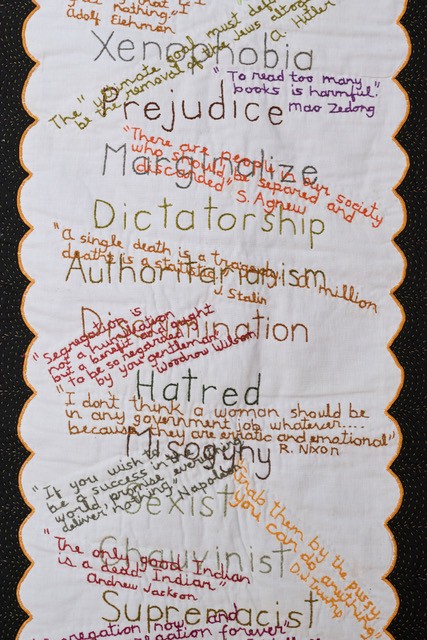 not that is I
get nothing." I
Adolf Eichmann
Xenophobia
The "ultimate goal must definitely
be the removal of the Jews altogether"
A. Hitler
"To read too many
books is harmful."
Mao Zedong
Prejudice
"There are people in our society
who should be separated and
discarded" S. Agnew
Marginalize
Dictatorship
"A single death is a tragedy, a million
deaths is a statistic"
J. Stalin
Authoritarianism
Discrimination
"Segregation is
not a humiliation
but a benefit and ought
to be so regarded
by you gentlemen"
Woodrow Wilson
Hatred
"I don't think a woman should be
in any government job whatever....
because they are erratic and emotional"
R. Nixon
Misogyny
"If you wish to
be a success in the
world promise everything
deliver nothing" Napoleon
Sexist
"Grab them by the pussy
You can do anything"
D.J. Trump
Chauvinist
"The only good Indian
is a dead Indian"
Andrew Jackson
Supremacist
segregation now and
segregation forever"